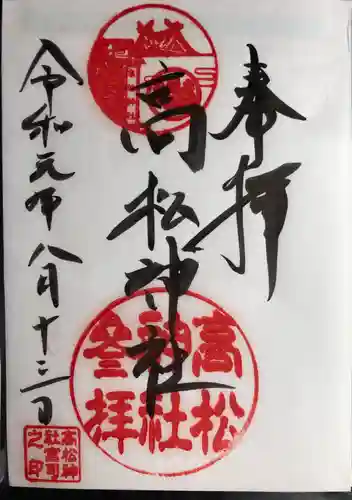 奉拝
高松神社
令和元年八月十三日
高松
神社
参拝
高松神
社宮司
之印